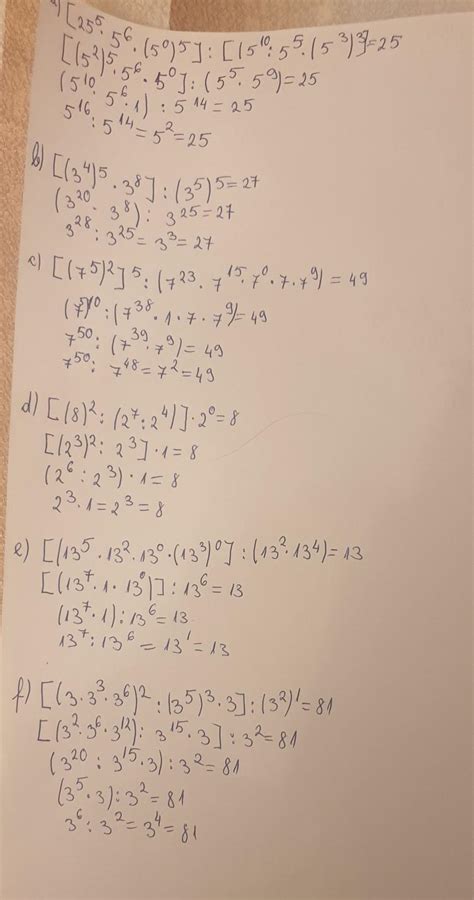 a) [25⁵ · 5⁶ · (5⁰)⁵] : [(5¹⁰ : 5⁵ · (5³)³] = 25
[(5²)⁵ · 5⁶ · 5⁰] : (5⁵ · 5⁹) = 25
(5¹⁰ · 5⁶ · 1) : 5¹⁴ = 25
5¹⁶ : 5¹⁴ = 5² = 25
b) [(3⁴)⁵ · 3⁸] : (3⁵)⁵ = 27
(3²⁰ · 3⁸) : 3²⁵ = 27
3²⁸ : 3²⁵ = 3³ = 27
c) [(7⁵)²]⁵ : (7²³ · 7¹⁵ · 7⁰ · 7 · 7⁹) = 49
(7⁵)¹⁰ : (7³⁸ · 1 · 7 · 7⁹) = 49
7⁵⁰ : (7³⁹ · 7⁹) = 49
7⁵⁰ : 7⁴⁸ = 7² = 49
d) [(8)² : (2⁷ : 2⁴)] · 2⁰ = 8
[(2³)² : 2³] · 1 = 8
(2⁶ : 2³) · 1 = 8
2³ · 1 = 2³ = 8
e) [(13⁵ · 13² · 13⁰ · (13³)⁰] : (13² · 13⁴) = 13
[(13⁷ · 1 · 13⁰)] : 13⁶ = 13
(13⁷ · 1) : 13⁶ = 13
13⁷ : 13⁶ = 13¹ = 13
f) [(3 · 3³ · 3⁶)² : (3⁵)³ · 3] : (3²)¹ = 81
[(3² · 3⁶ · 3¹²) : 3¹⁵ · 3] : 3² = 81
(3²⁰ : 3¹⁵ · 3) : 3² = 81
(3⁵ · 3) : 3² = 81
3⁶ : 3² = 3⁴ = 81